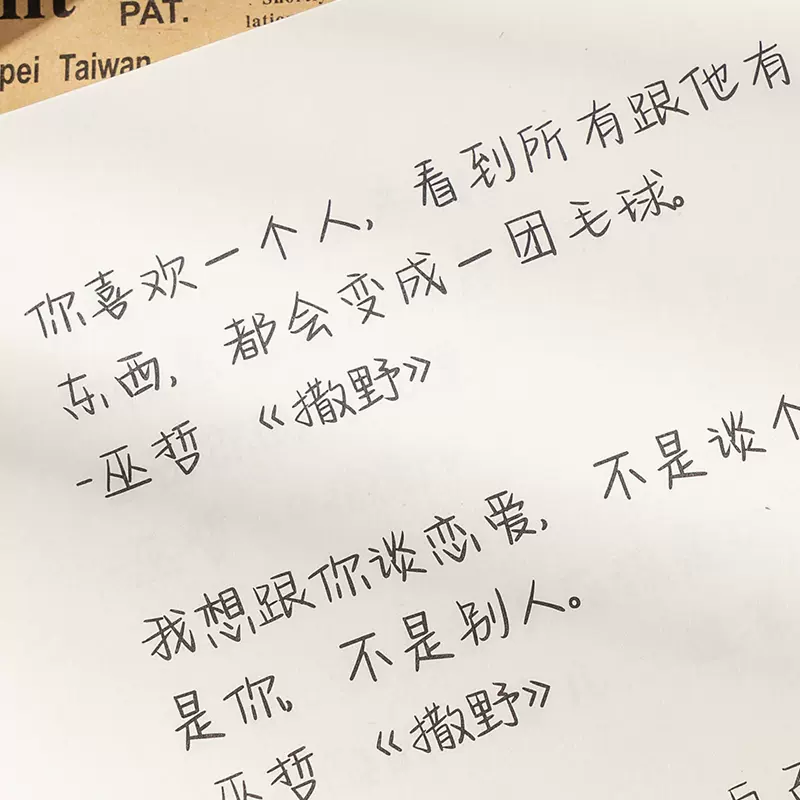 PAT.
pei Taiwan
你喜欢一个人，看到所有跟他有
东西，都会变成一团毛球。
-巫哲 《撒野》
我想跟你谈恋爱，不是谈个
是你，不是别人。
巫哲 《撒野》